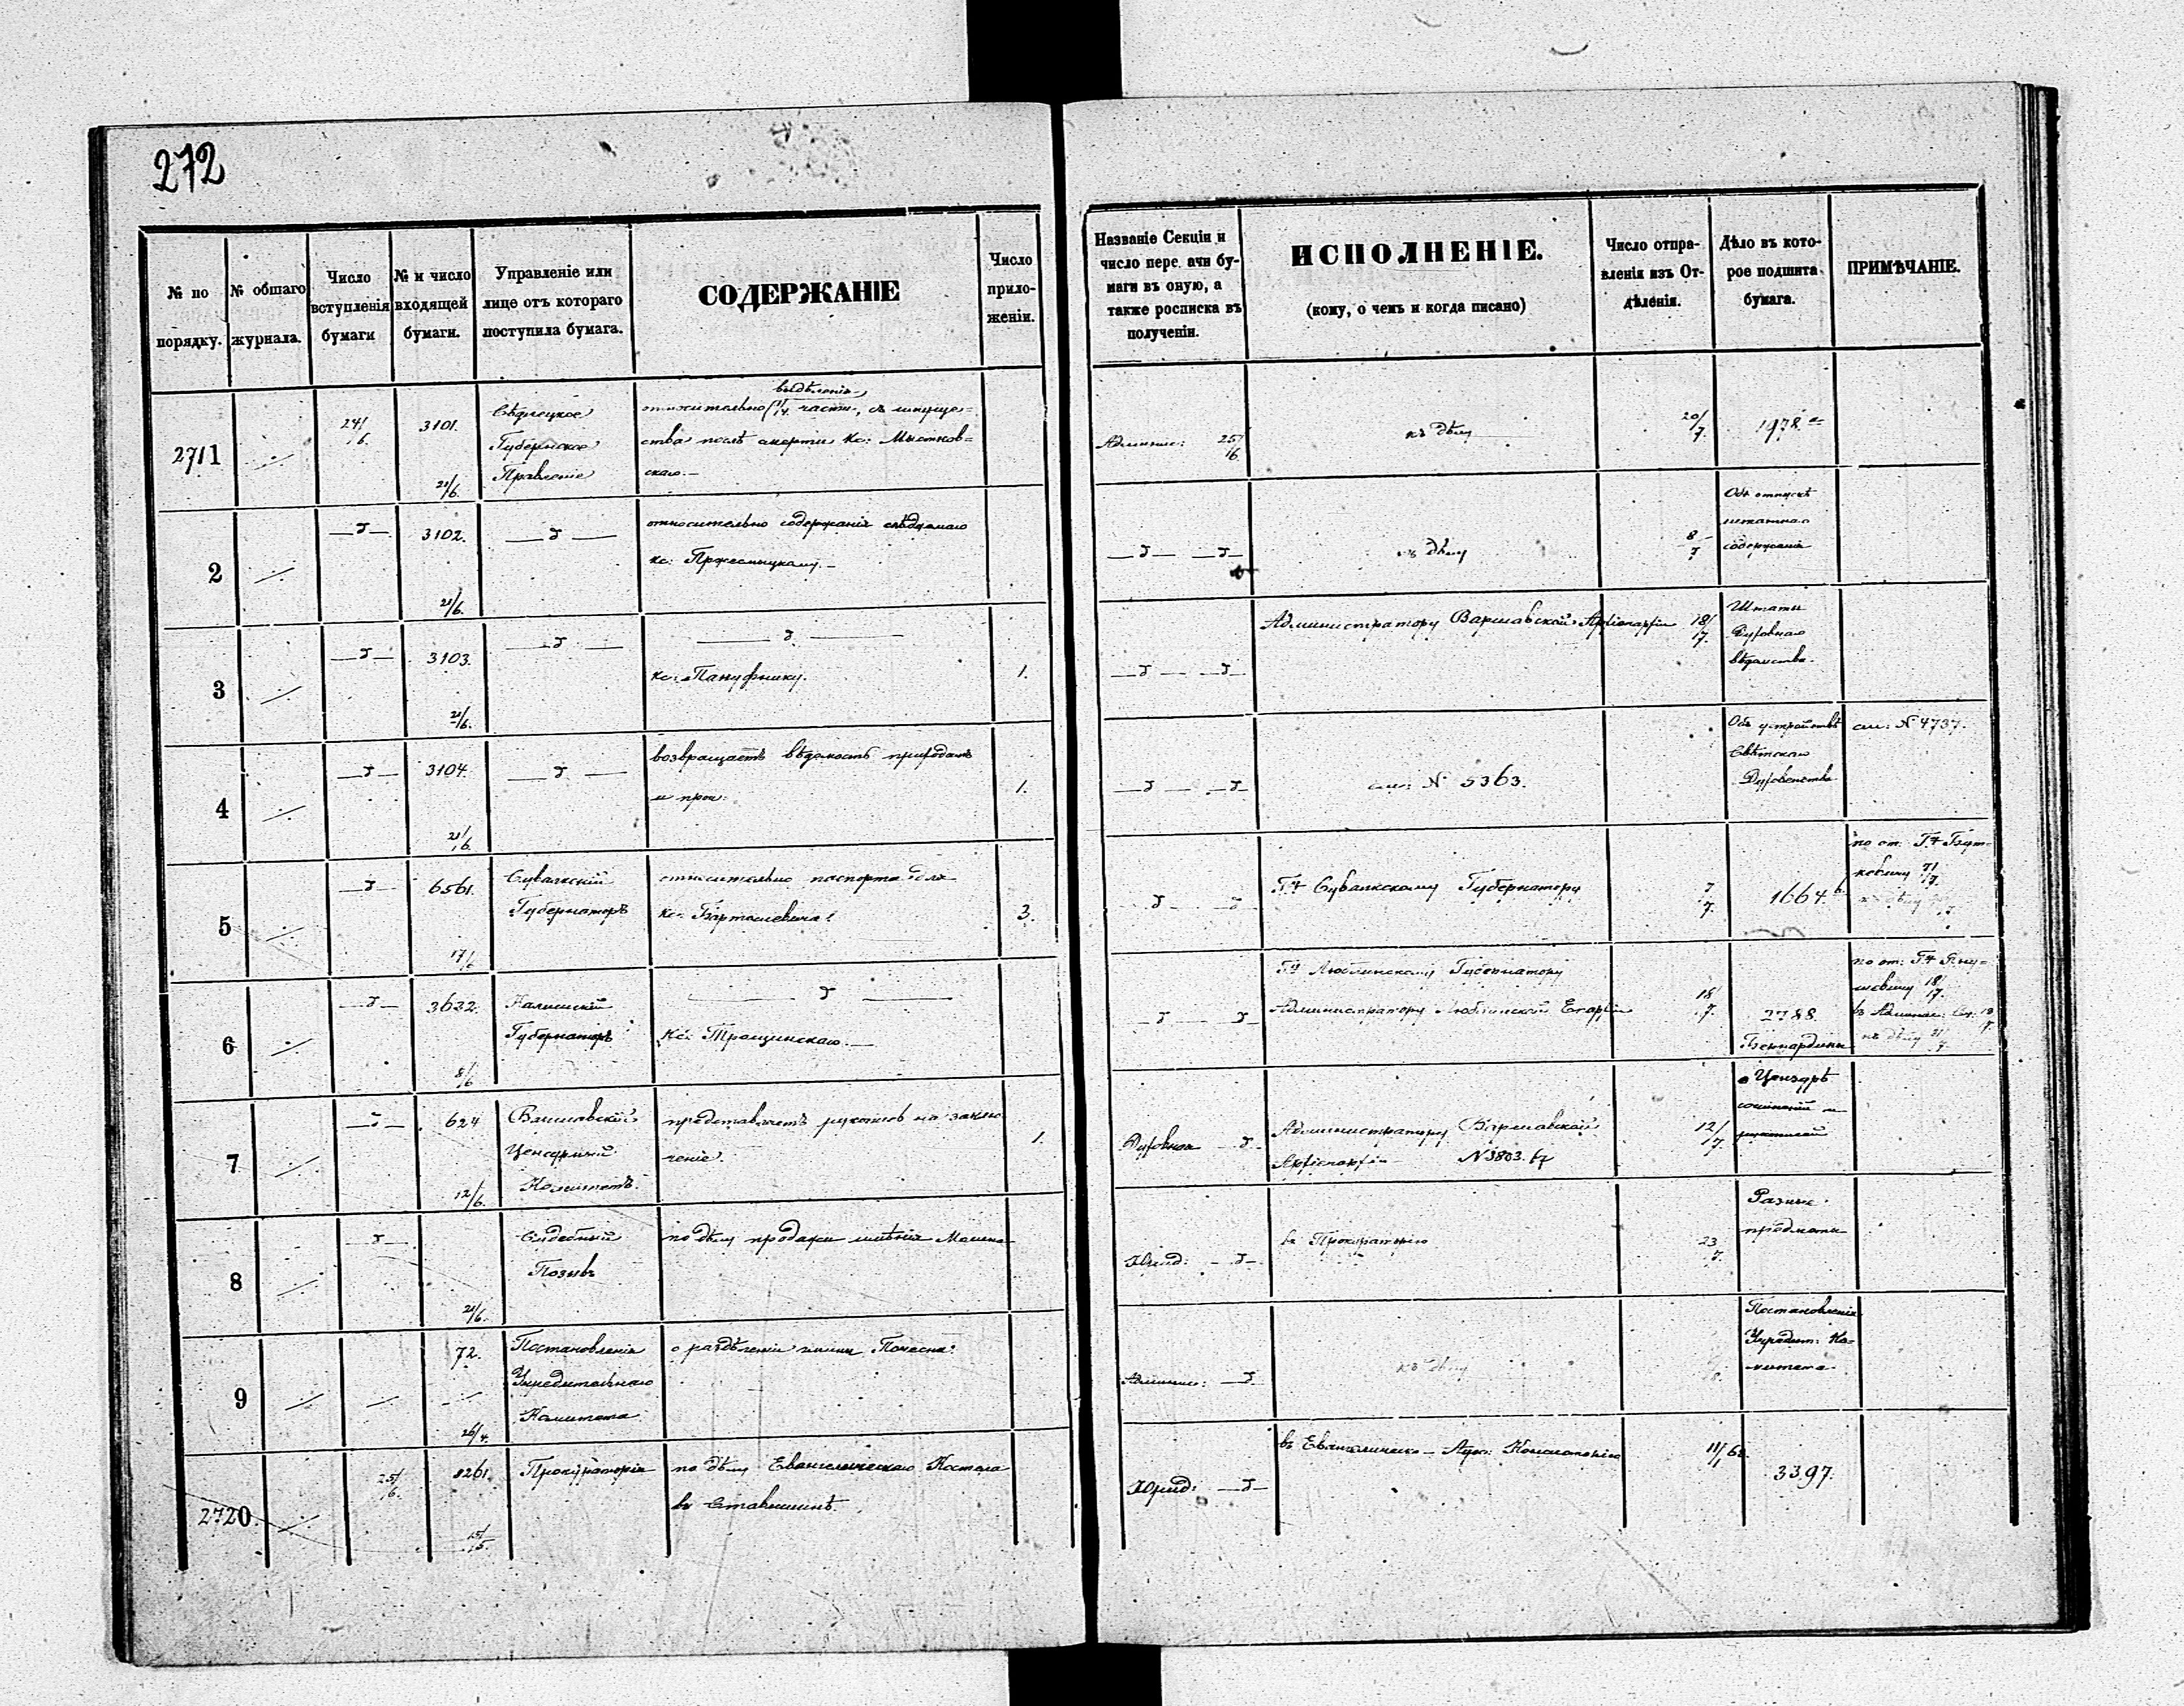 272
№ по порядку.
№ обшаго журнала.
Число вступленія бумаги
№ и число входящей бумаги.
Управленіе или лице отъ котораго поступила бумага.
СОДЕРЖАНІЕ
Число прило-женіи.
Названіе Секціи и число пере. ачи бу-маги въ оную, а также росписка въ полученіи.
ИСПОЛНЕНІЕ.
(кому, о чемъ и когда писано)
Число отпра-вленія изъ От-дѣленія.
Дѣло въ кото-рое подшита бумага.
ПРИМѢЧАНІЕ.
2711
24/6.
3101.
21/6.
Сѣдлецкое
Губернское
Правленіе
выдѣленія
относительно 1/14 части, съ имуще=
ства послѣ смерти Кс:
скаго.—
Админис: 25/6
къ дѣлу
20/7.
1978
2
—"—
3102.
21/6.
—"—
относительно содержанія слѣдуемаго
кс:
—"— —"—
къ дѣлу
8/7
Объ отпускѣ
содержанія
3
—"—
3103.
21/6.
—"—
—"—
кс: Пануфнику.
1.
—"— —"—
Администратору Варшавской Архіепархіи
18/7.
Штаты
Духовнаго
вѣдомства.
4
—"—
3104.
21/6.
—"—
возвращаетъ вѣдомость приходамъ
и проч:
1.
—"— —"—
см: № 5363.
Объ устройствѣ
Свѣтскаго
Духовенства
см: № 4737.
5
—"—
6561.
17/6
Сувалкскій
Губернаторъ
относительно паспорта для
кс: Бартошевича
3.
—"— —"—
Г-ну Сувалкскому Губернатору
7/7.
1664.
по от: Г-ну
6
—"—
3632.
8/6
Калишскій
Губернаторъ
—"—
Кс: Трощинскаго.—
—"— —"—
Г-ну Люблинскому Губернатору
Администратору Люблинской Епархіи
18/7.
2788
Бернардины
по от: Г-ну
18/7.
къ дѣлу
7
—"—
624
12/6.
Варшавскій
Ценсурный
Комитетъ.
представляетъ рукопись на заклю-
ченіе.
1.
Духовная —"—
Администратору Варшавской
Архіепархіи № 3803.
12/7.
о Цензурѣ
сочиненій и
рукописей
8
—"—
21/6.
Судебный
Позывъ
по дѣлу продажи имѣнія
Юрид: —"—
въ Прокураторію
23/7.
Разные
предметы
9
72.
26/4.
Постановленія
Учредительнаго
Комитета
о раздѣленіи гмины
Админис: —"—
къ дѣлу
Постановленія
Учредит: Ко=
митета
2720.
25/6.
8261.
15/5.
Прокураторія
по дѣлу Евангелическаго Костела
въ Ставишинѣ.
Юрид: —"—
въ Евангелическо — Аугс: Консисторію
3397.